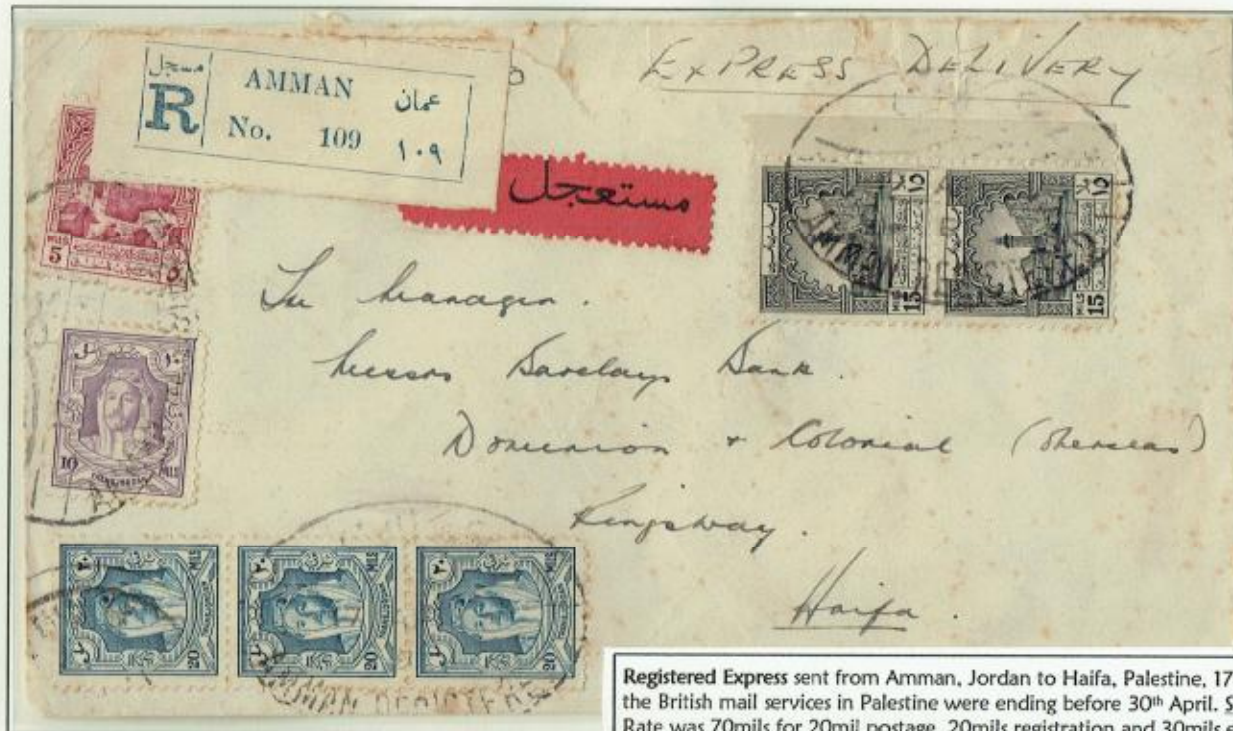 EXPRESS DELIVERY
مسجل
R
AMMAN عمان
No. 109 ١٠٩
مستعجل
MILS 5 ٥
MILS 15 ١٥
MILS 15 ١٥
Manager.
Messrs Barclays Bank.
Dominion + Colonial (Overseas)
Kingsway.
Haifa.
١٠
10 MILS
٢٠ MILS 20
٢٠ MILS 20
٢٠ MILS 20
AMMAN REGISTERED
Registered Express sent from Amman, Jordan to Haifa, Palestine, 17
the British mail services in Palestine were ending before 30th April.
Rate was 70mils for 20mil postage, 20mils registration and 30mils